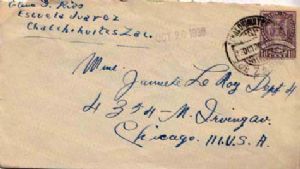 Escuela Juarez
Chalchihuites Zac.
OCT 20 1938
Mme. Jannete Le Roy Dept 4
4354 - M. Irvingav.
Chicago. Ill. U.S.A.